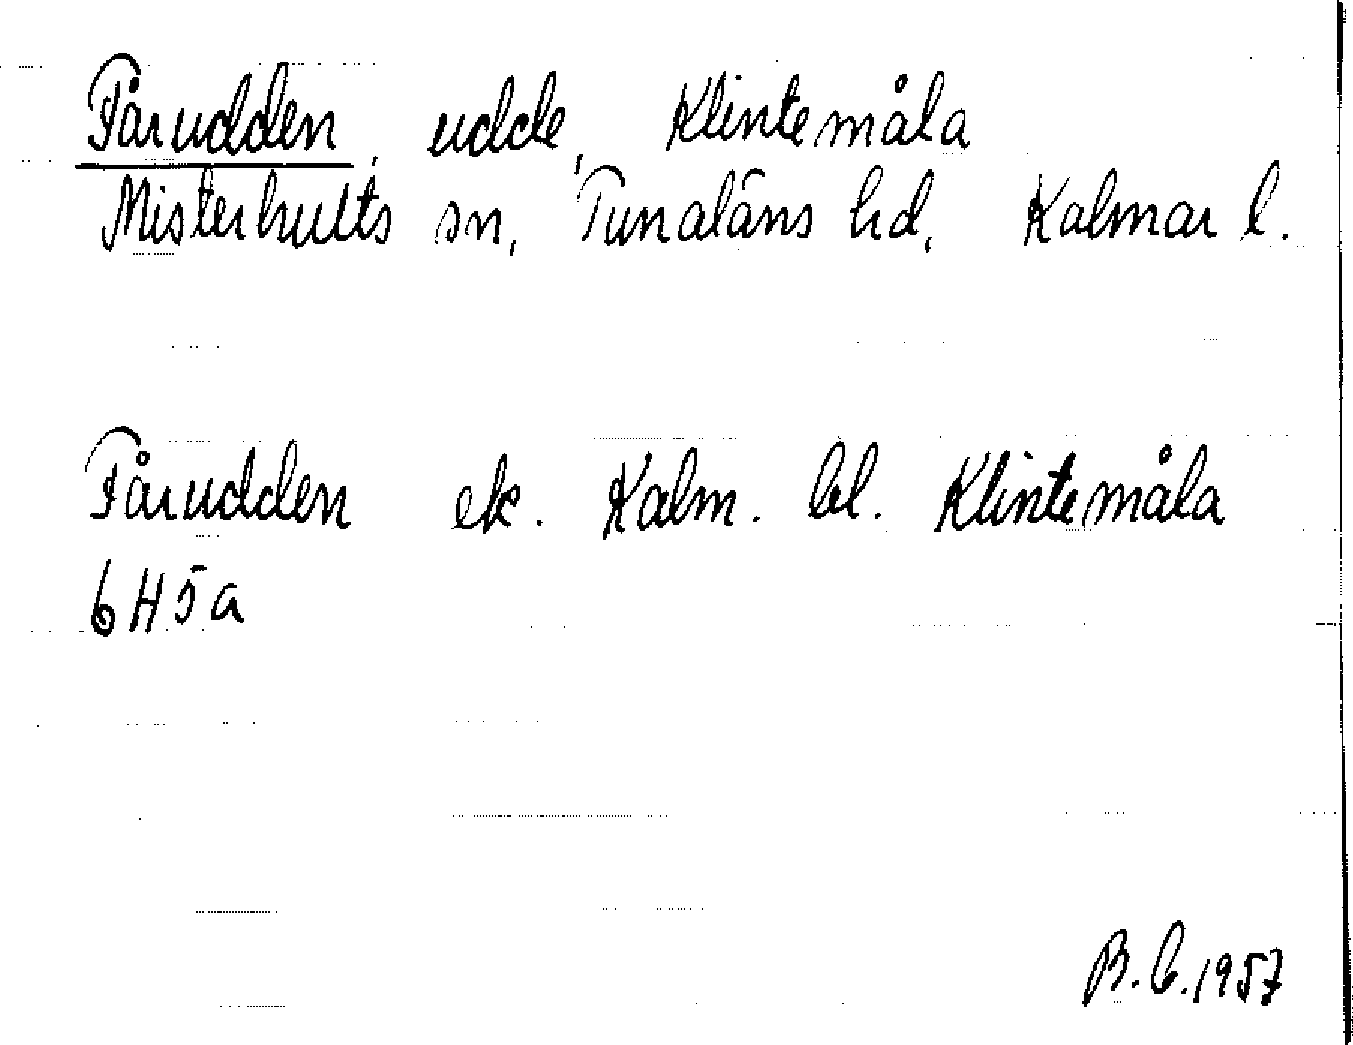 Fårudden, udde, Klintemåla
Misterhults sn, Tunaläns hd, Kalmar l.
Fårudden ek. Kalm. bl. Klintemåla
6H5a
B.C.1957